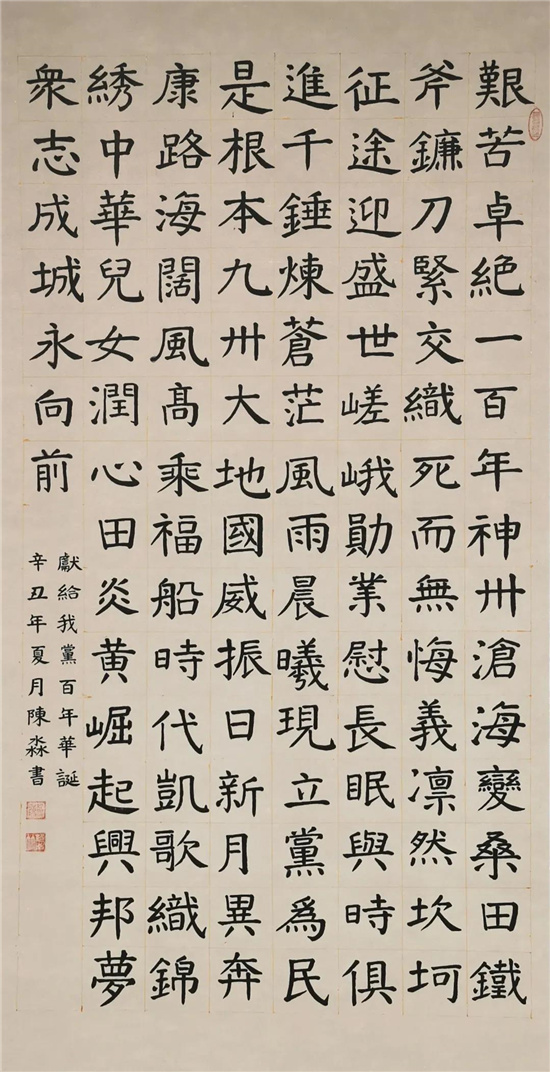 艱苦卓絕一百年神卅滄海變桑田鐵
斧鐮刀緊交織死而無悔義凛然坎坷
征途迎盛世嵯峨勛業慰長眠與時俱
進千錘煉蒼茫風雨晨曦現立黨為民
是根本九卅大地國威振日新月異奔
康路海闊風高乘福船時代凱歌織錦
綉中華兒女潤心田炎黄崛起興邦夢
衆志成城永向前
獻給我黨百年華誕
辛丑年夏月陳淼書